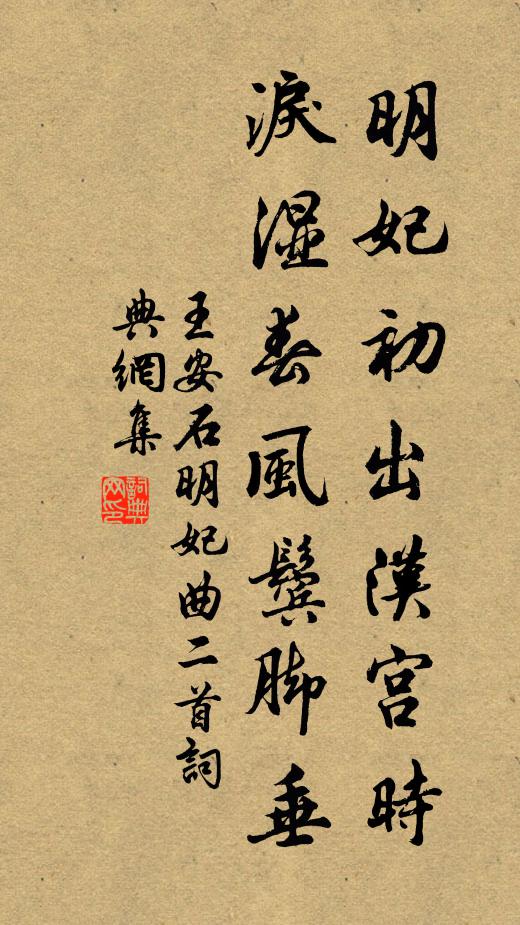 明妃初出漢宮時
淚濕春風鬢脚垂
王安石明妃曲二首詞
典網集
詞典網印